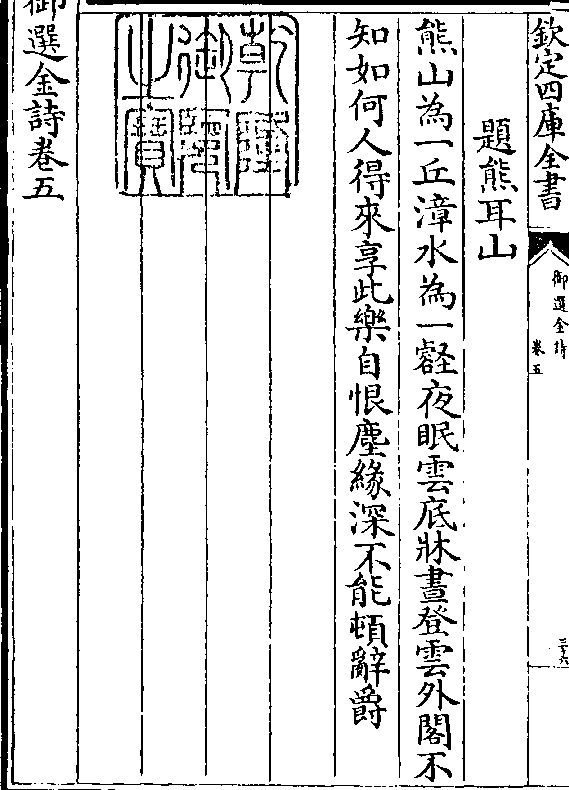 欽定四庫全書
御選金詩
卷五
三十六
題熊耳山
熊山為一丘漳水為一壑夜眠雲底牀晝登雲外閣不
知如何人得來享此樂自恨塵緣深不能頓辭爵
乾隆御覽之寶
御選金詩卷五